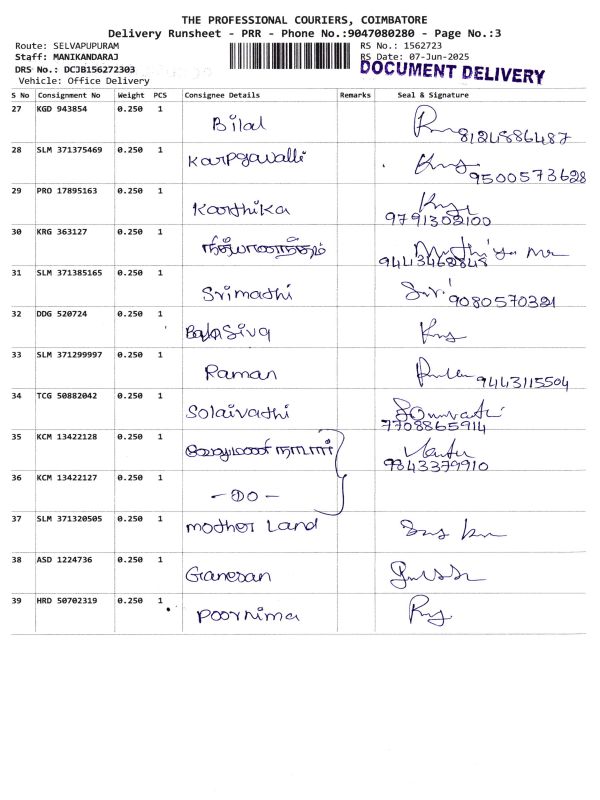 THE PROFESSIONAL COURIERS, COIMBATORE
Delivery Runsheet - PRR - Phone No.:9047080280 - Page No.:3
Route: SELVAPUPURAM
RS No.: 1562723
Staff: MANIKANDARAJ
RS Date: 07-Jun-2025
DRS No.: DCJB156272303
DOCUMENT DELIVERY
Vehicle: Office Delivery
S No Consignment No Weight PCS Consignee Details Remarks Seal & Signature
27 KGD 943854 0.250 1 Bilal 8124886487
28 SLM 371375469 0.250 1 Karpgavalli 9500573628
29 PRO 17895163 0.250 1 Karthika 9791302100
30 KRG 363127 0.250 1 9443468848
31 SLM 371385165 0.250 1 Srimathi 9080570321
32 DDG 520724 0.250 1 BalaSiva
33 SLM 371299997 0.250 1 Raman 9443115504
34 TCG 50882042 0.250 1 Solaivathi 7708865914
35 KCM 13422128 0.250 1 9843379910
36 KCM 13422127 0.250 1 - DO -
37 SLM 371320505 0.250 1 mother Land
38 ASD 1224736 0.250 1 Ganesan
39 HRD 50702319 0.250 1 Poornima